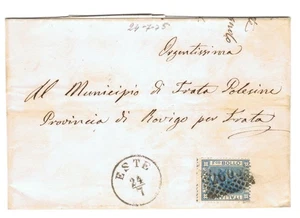 24-7-75
Urgentissima
Al Municipio di Frata Polesine
Provincia di Rovigo per Frata
ESTE
24
7
BOLLO